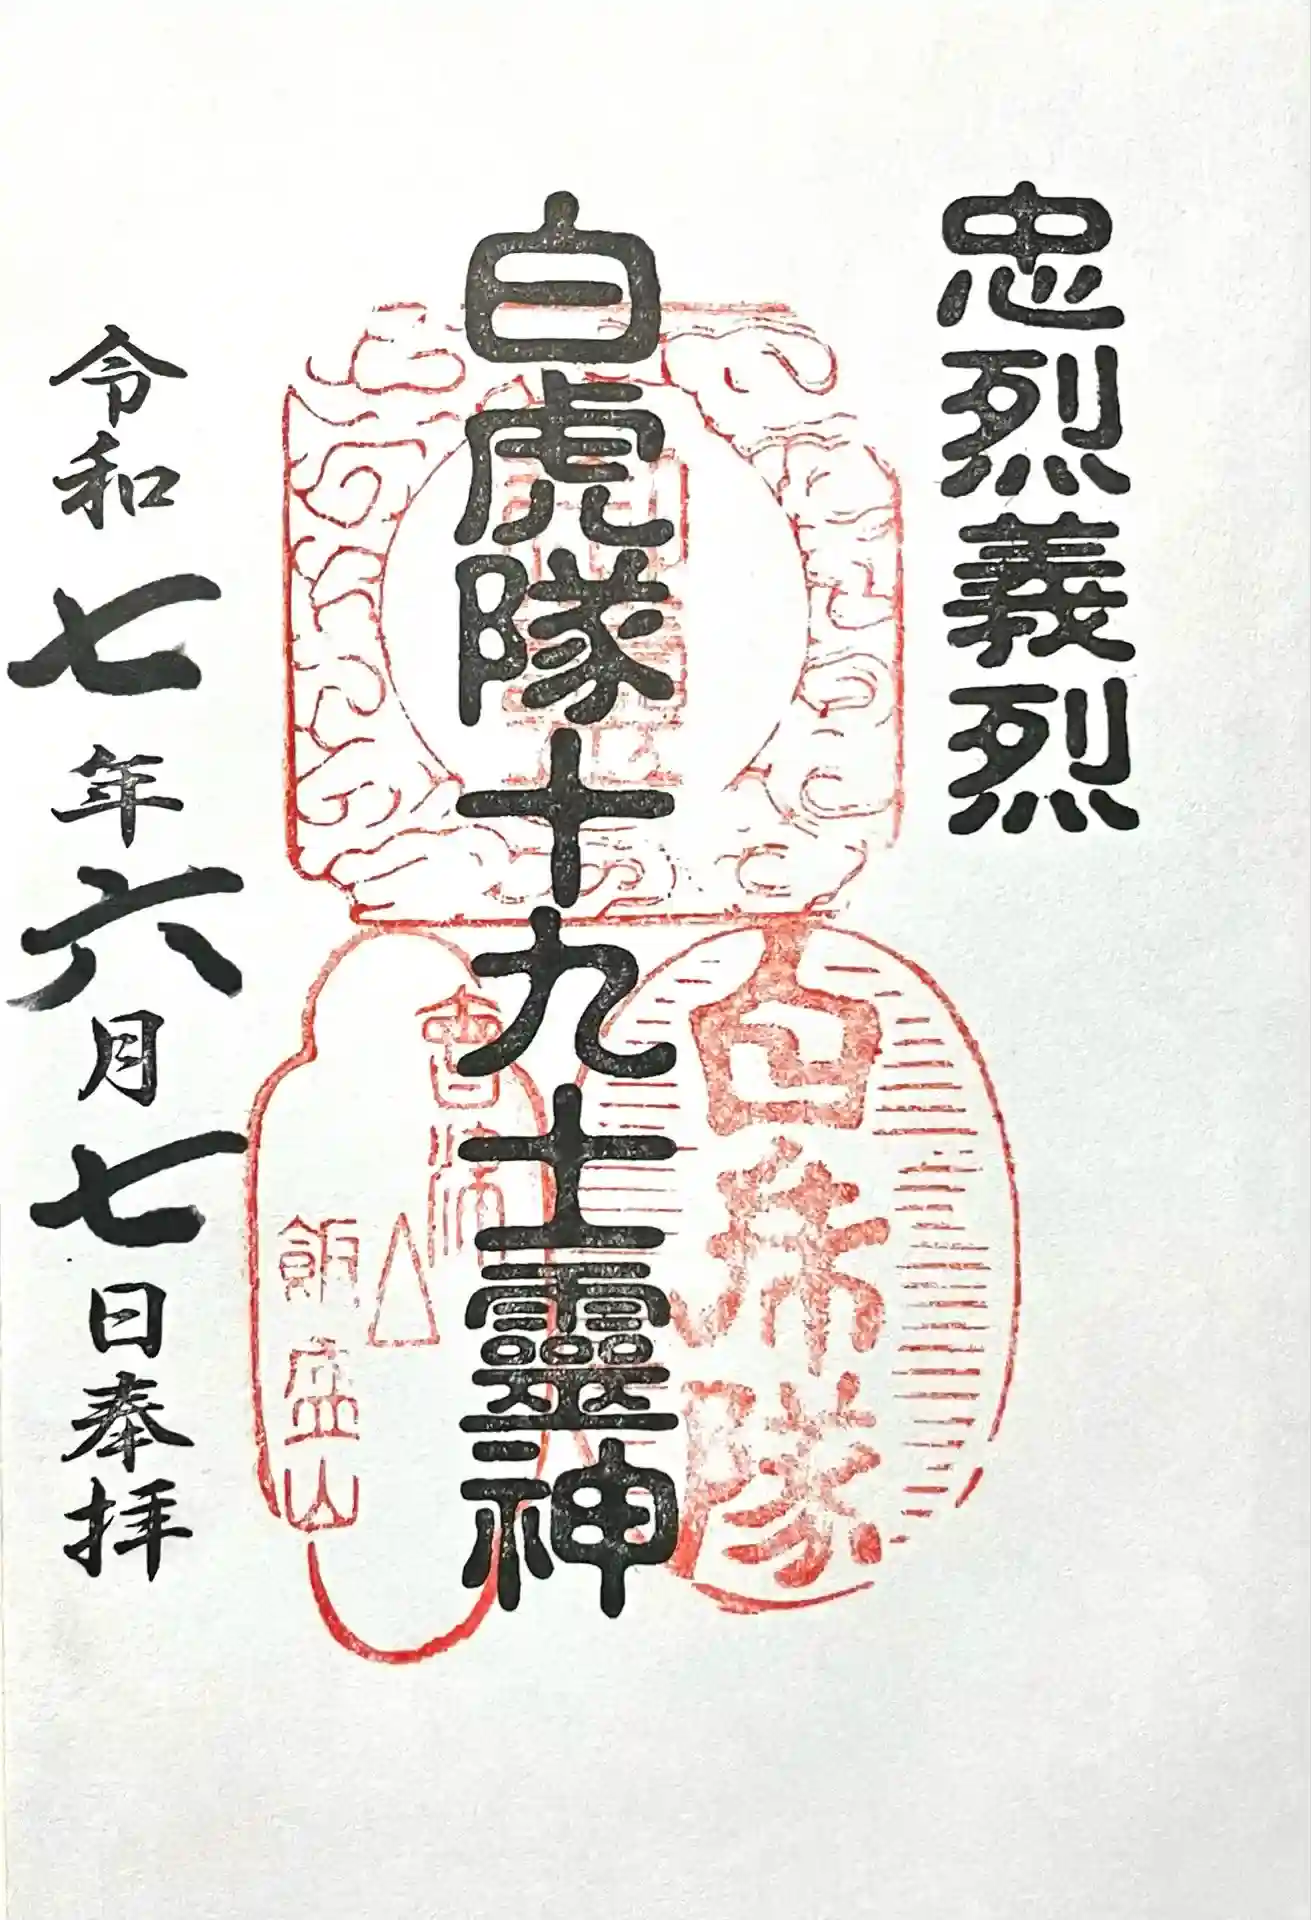 忠烈義烈
白虎隊十九士靈神
令和七年六月七日奉拝
白虎隊
會津
飯盛山